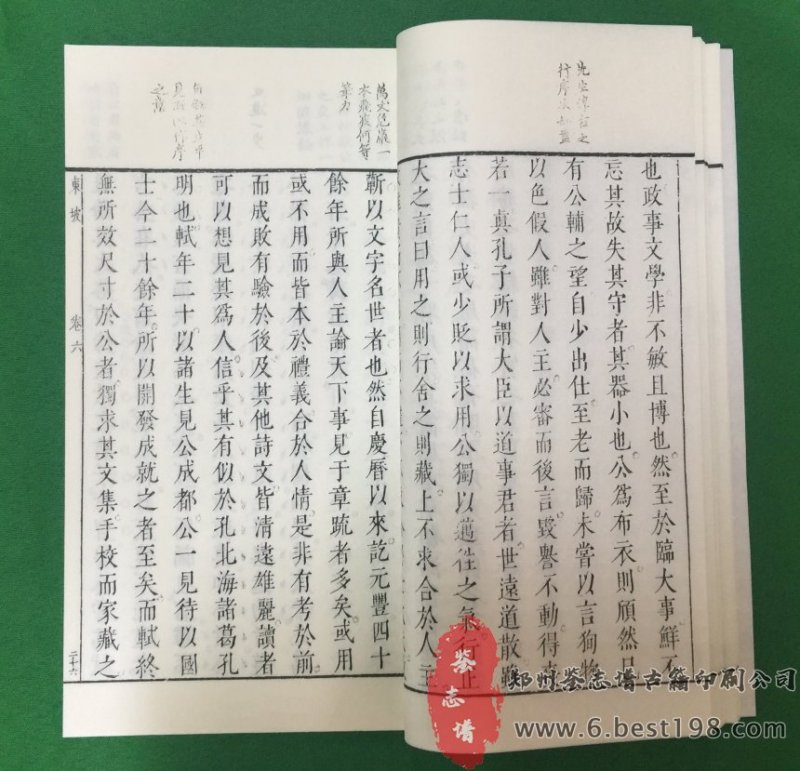 也政事文學非不敏且博也然至於臨大事鮮不
忘其故失其守者其器小也公爲布衣則頎然已
有公輔之望自少出仕至老而歸未嘗以言狥物
以色假人雖對人主必審而後言毀譽不動得喪
若一真孔子所謂大臣以道事君者世遠道散雖
志士仁人或少貶以求用公獨以邁往之氣行正
大之言曰用之則行舍之則藏上不求合於人主
萬丈危巖一
筆力
靳以文字名世者也然自慶曆以來訖元豐四十
餘年所與人主論天下事見于章疏者多矣或用
或不用而皆本於禮義合於人情是非有考於前
而成敗有驗於後及其他詩文皆清遠雄麗讀者
可以想見其爲人信乎其有似於孔北海諸葛孔
明也軾年二十以諸生見公成都公一見待以國
士今二十餘年所以開發成就之者至矣而軾終
無所效尺寸於公者獨求其文集手校而家藏之
東坡 卷六 二十六
鉴志谱
郑州鉴志谱古籍印刷公司
www.6.best198.com